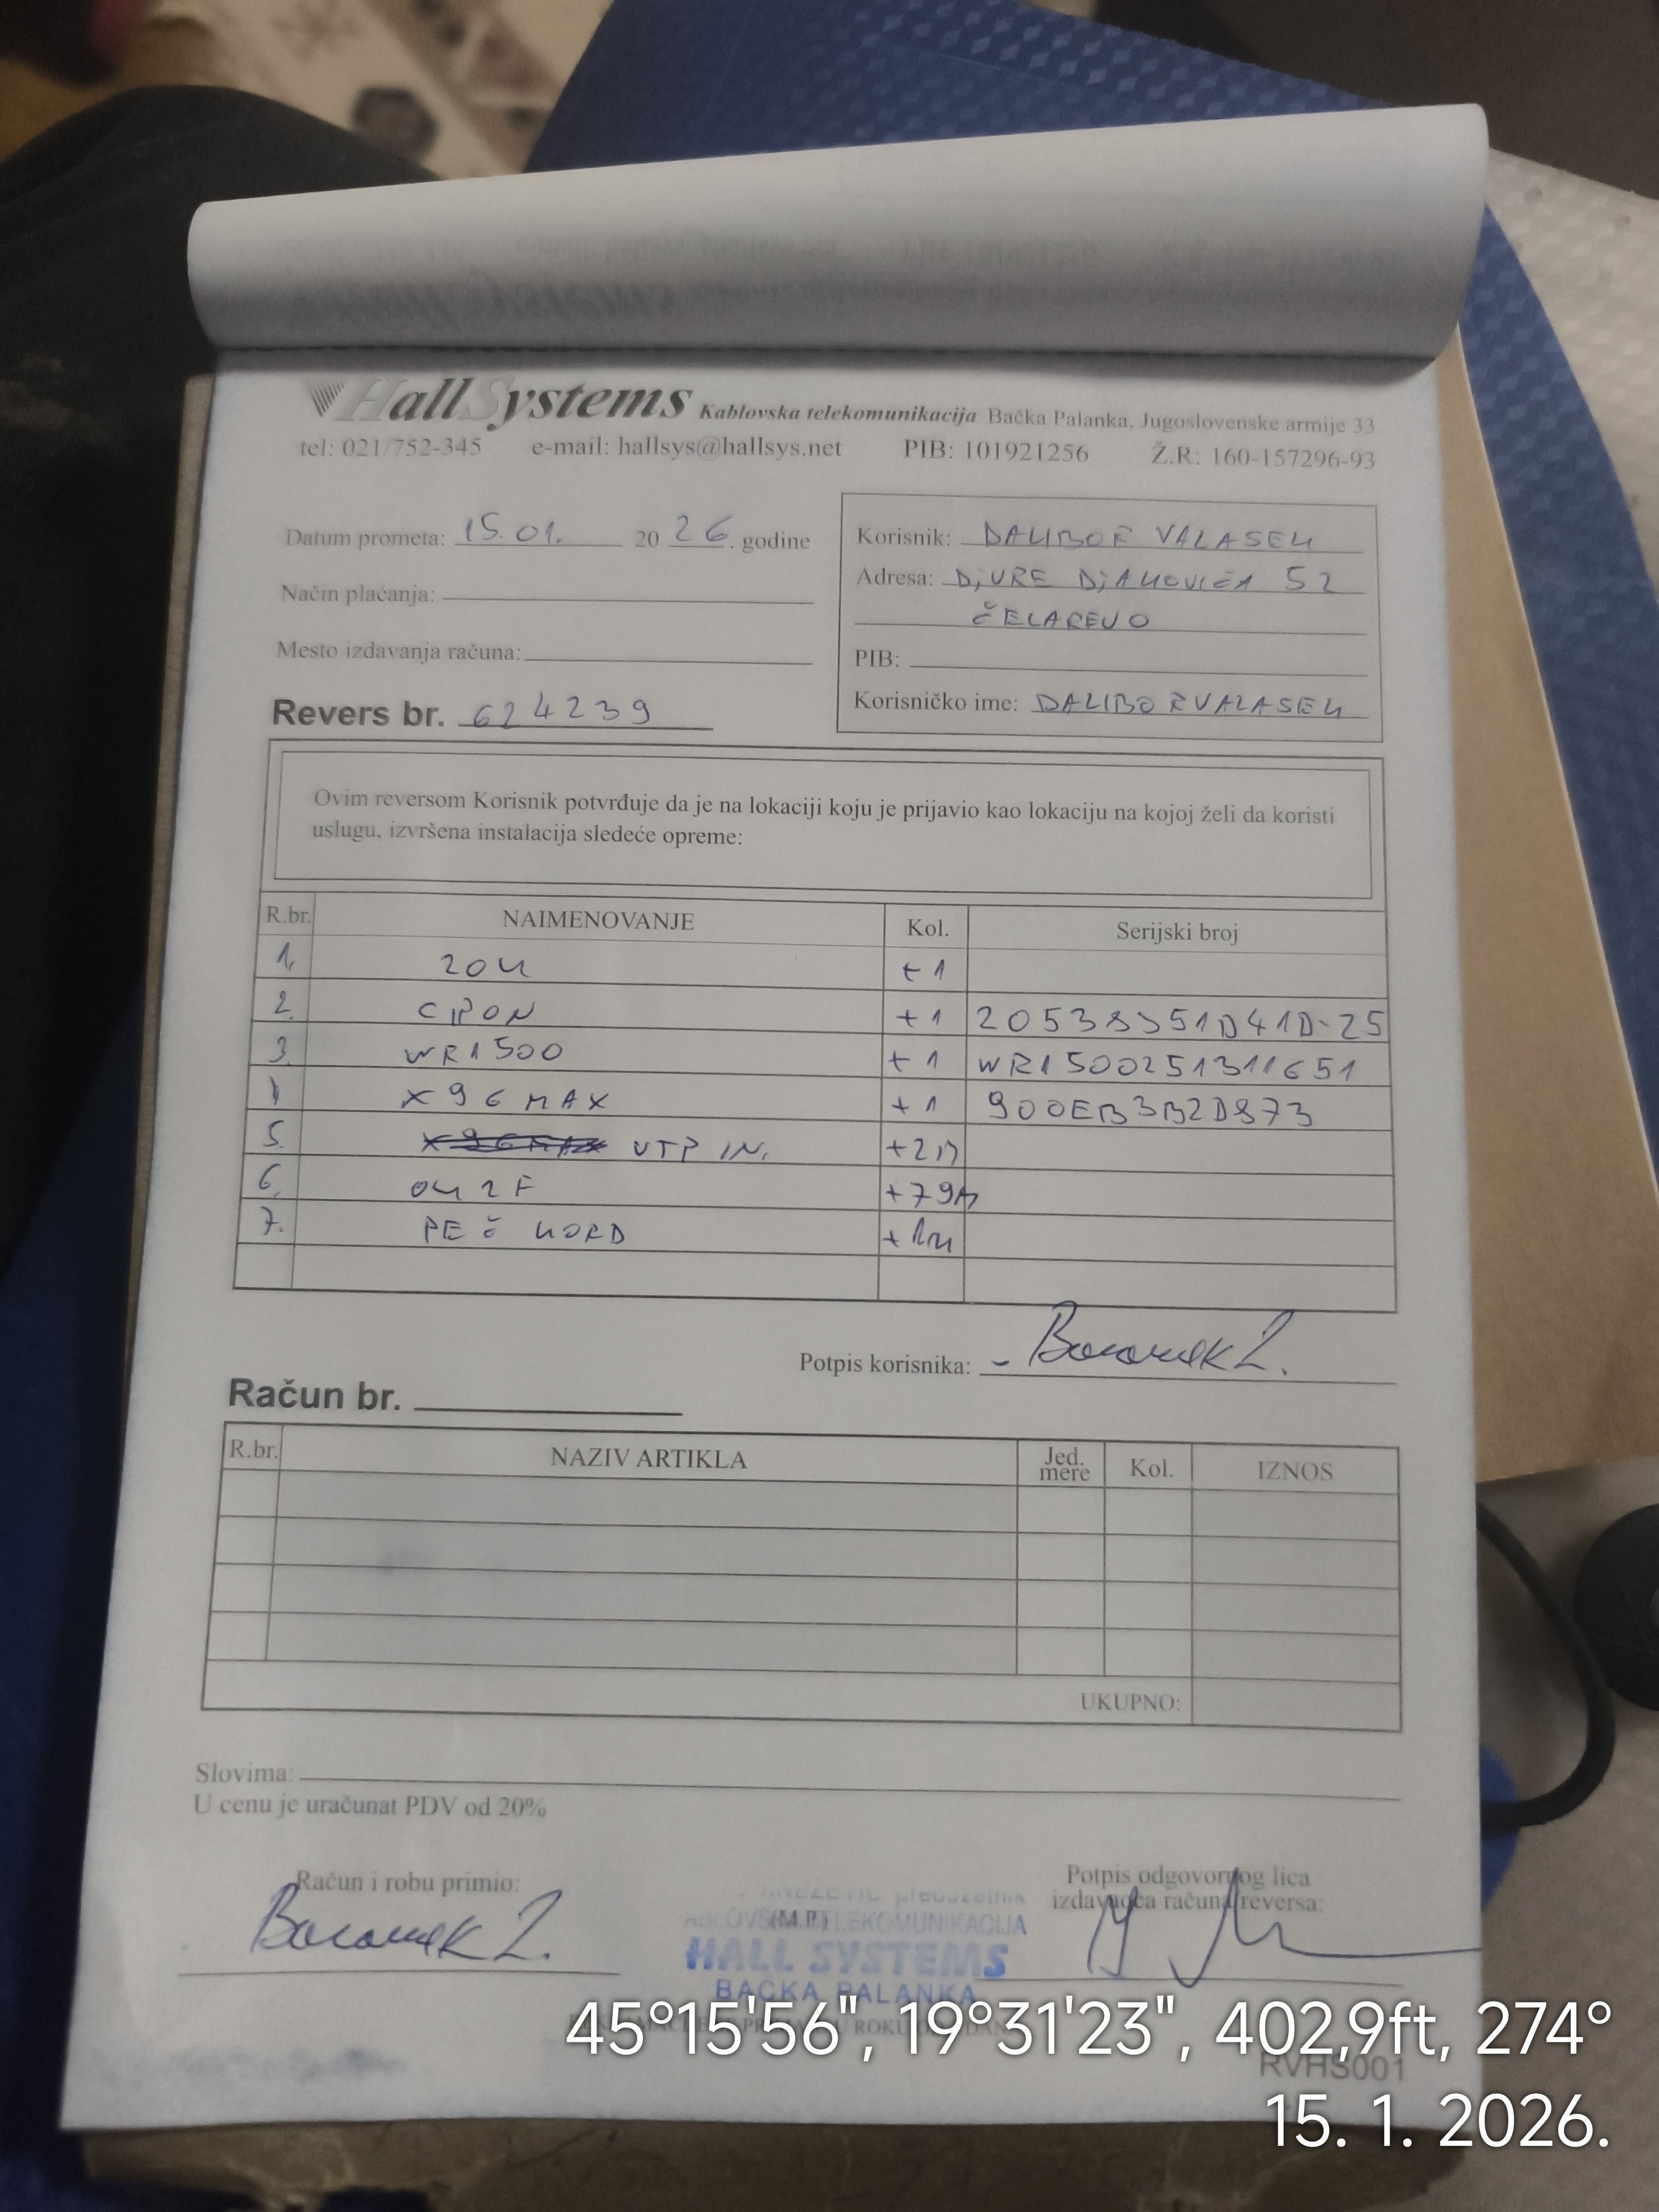 HallSystems Kablovska telekomunikacija Bačka Palanka, Jugoslovenske armije 33
tel: 021/752-345 e-mail: hallsys@hallsys.net PIB: 101921256 Ž.R: 160-157296-93
Datum prometa: 15.01. 20 26. godine
Način plaćanja:
Mesto izdavanja računa:
Revers br. 624239
Korisnik: DALIBOR VALASEK
Adresa: DjURE DjAKOVIĆA 52
ČELAREVO
PIB:
Korisničko ime: DALIBORVALASEK
Ovim reversom Korisnik potvrđuje da je na lokaciji koju je prijavio kao lokaciju na kojoj želi da koristi
uslugu, izvršena instalacija sledeće opreme:
R.br. NAIMENOVANJE Kol. Serijski broj
1. ZOK +1
2. GPON +1
3. WR1500 +1 WR1500251311651
X96 MAX +1 900EB3B2D873
5. X96 MAX UTP IN. +2m
6. OK 2F +79m
7. PEČ KORD +1m
Potpis korisnika:
Račun br.
R.br. NAZIV ARTIKLA Jed. mere Kol. IZNOS
UKUPNO:
Slovima:
U cenu je uračunat PDV od 20%
Račun i robu primio:
(M.P.)
Potpis odgovornog lica
izdavaoca računa/reversa:
KNEŽEVIĆ preduzetnik
TELEKOMUNIKACIJA
HALL SYSTEMS
BAČKA PALANKA
45°15'56", 19°31'23", 402,9ft, 274°
RVHS001
15. 1. 2026.